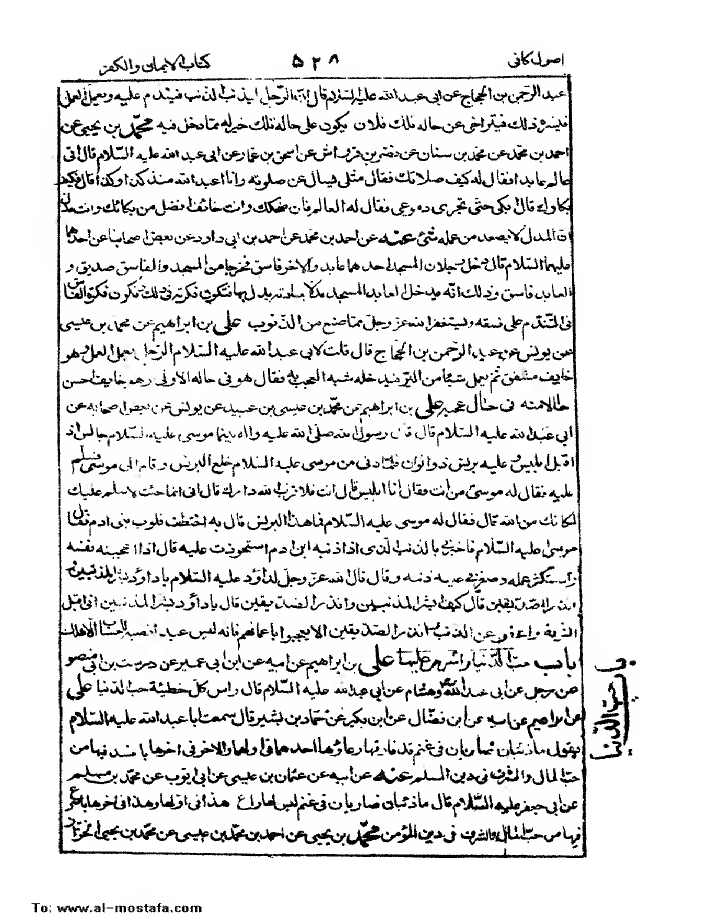 اصول كافى ٥٢٨ كتاب الايمان والكفر
عبد الرحمن بن الحجاج عن ابى عبد الله عليه السلام قال ان الرجل ليذنب الذنب فيندم عليه ويعمل العمل
فيسره ذلك فيتراخى عن حاله تلك فلان يكون على حاله تلك خير له مما دخل فيه محمد بن يحيى عن
احمد بن محمد عن محمد بن سنان عن نضر بن قرواش عن اسحق بن عمار عن ابى عبد الله عليه السلام قال اتى
عالم عابدا فقال له كيف صلاتك فقال مثلى يسأل عن صلوته وانا اعبد الله منذ كذا وكذا قال فكيف
بكاؤك قال ابكى حتى تجرى دموعى فقال له العالم فان ضحكك وانت خائف افضل من بكائك وانت مدل
ان المدل لا يصعد من عمله شئ عنه عن احمد بن محمد عن احمد بن ابى داود عن بعض اصحابنا عن احدهما
عليهما السلام قال دخل رجلان المسجد احدهما عابد والاخر فاسق فخرجا من المسجد والفاسق صديق و
العابد فاسق وذلك انه يدخل العابد المسجد مدلا بعبادته يدل بها فتكون فكرته فى ذلك وتكون فكرة الفاسق
فى التندم على فسقه ويستغفر الله عز وجل مما صنع من الذنوب على بن ابراهيم عن محمد بن عيسى
عن يونس عن عبد الرحمن بن الحجاج قال قلت لابى عبد الله عليه السلام الرجل يعمل العمل وهو
خايف مشفق ثم يعمل شيئا من البر فيدخله شبه العجب به فقال هو فى حاله الاولى وهو خايف احسن
حالا منه فى حال عجبه على بن ابراهيم عن محمد بن عيسى بن عبيد عن يونس عن بعض اصحابه عن
ابى عبد الله عليه السلام قال قال رسول الله صلى الله عليه واله بينما موسى عليه السلام جالس اذ
اقبل ابليس وعليه برنس ذو الوان فلما دنى من موسى عليه السلام خلع البرنس وقام الى موسى فسلم
عليه فقال له موسى من انت فقال انا ابليس قال انت فلا قرب الله دارك قال انى انما جئت لاسلم عليك
لمكانك من الله قال فقال له موسى عليه السلام فما هذا البرنس قال به اختطف قلوب بنى ادم فقال
موسى عليه السلام فاخبرنى بالذنب الذى اذا اذنبه ابن ادم استحوذت عليه قال اذا اعجبته نفسه
واستكثر عمله وصغر فى عينه ذنبه وقال قال الله عز وجل لداود عليه السلام يا داود بشر المذنبين
وانذر الصديقين قال كيف ابشر المذنبين وانذر الصديقين قال يا داود بشر المذنبين انى اقبل
التوبة واعفو عن الذنب وانذر الصديقين الا يعجبوا باعمالهم فانه ليس عبد انصبه للحساب الا هلك
باب حب الدنيا والحرص عليها على بن ابراهيم عن ابيه عن ابن ابى عمير عن درست بن ابى منصور
عن رجل عن ابى عبد الله وهشام عن ابى عبد الله عليه السلام قال رأس كل خطيئة حب الدنيا على
بن ابراهيم عن ابيه عن ابن فضال عن ابن بكير عن حماد بن بشير قال سمعت ابا عبد الله عليه السلام
يقول ما ذئبان ضاريان فى غنم قد فارقها رعاؤها احدهما فى اولها والاخر فى اخرها بافسد فيها من
حب المال والشرف فى دين المسلم عنه عن ابيه عن عثمان بن عيسى عن ابى ايوب عن محمد بن مسلم
عن ابى جعفر عليه السلام قال ما ذئبان ضاريان فى غنم ليس لها راع هذا فى اولها وهذا فى اخرها باسرع
فيها من حب المال والشرف فى دين المؤمن محمد بن يحيى عن احمد بن محمد بن عيسى عن محمد بن يحيى الخزاز
باب حب الدنيا
To: www.al-mostafa.com